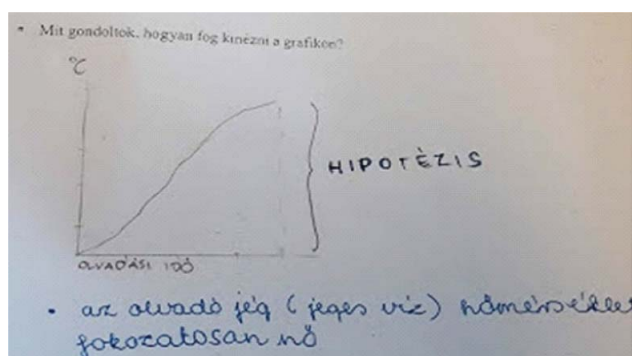 • Mit gondoltok, hogyan fog kinézni a grafikon?
°C
HIPOTÉZIS
OLVADÁSI IDŐ
• az olvadó jég (jeges víz) hőmérséklet
fokozatosan nő